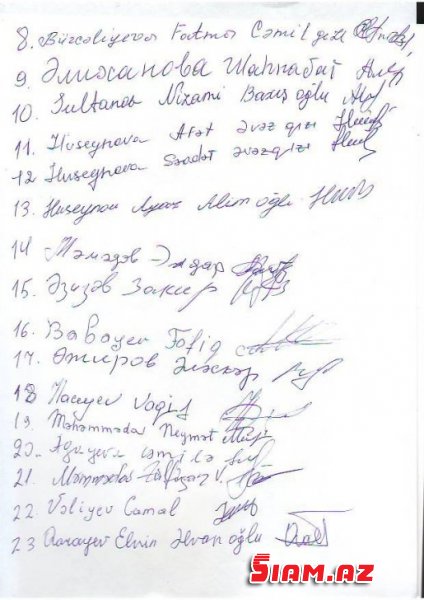 8. Bürcəliyeva Fatma Cəmil qızı
9 Əлиханова Шахпабат
10. Sultanov Nizami Baxış oğlu
11. Huseynova Afət Əvəz qızı
12 Huseynova Səadət Əvəz qızı
13. Huseynov Ayaz Alim oğlu
14 Мəмəдов Елдар
15. Əзизов Закир
16. Babayev Tofiq
17. Əмиров Əлəскəр
18 Hacıyev Vaqif
19 Məhəmmədov Neymət
20. Ağayeva Cəmilə
21. Məmmədov V.
22 Vəliyev Camal
23 Qarayev Elvin Əlvan oğlu
SIAM.AZ